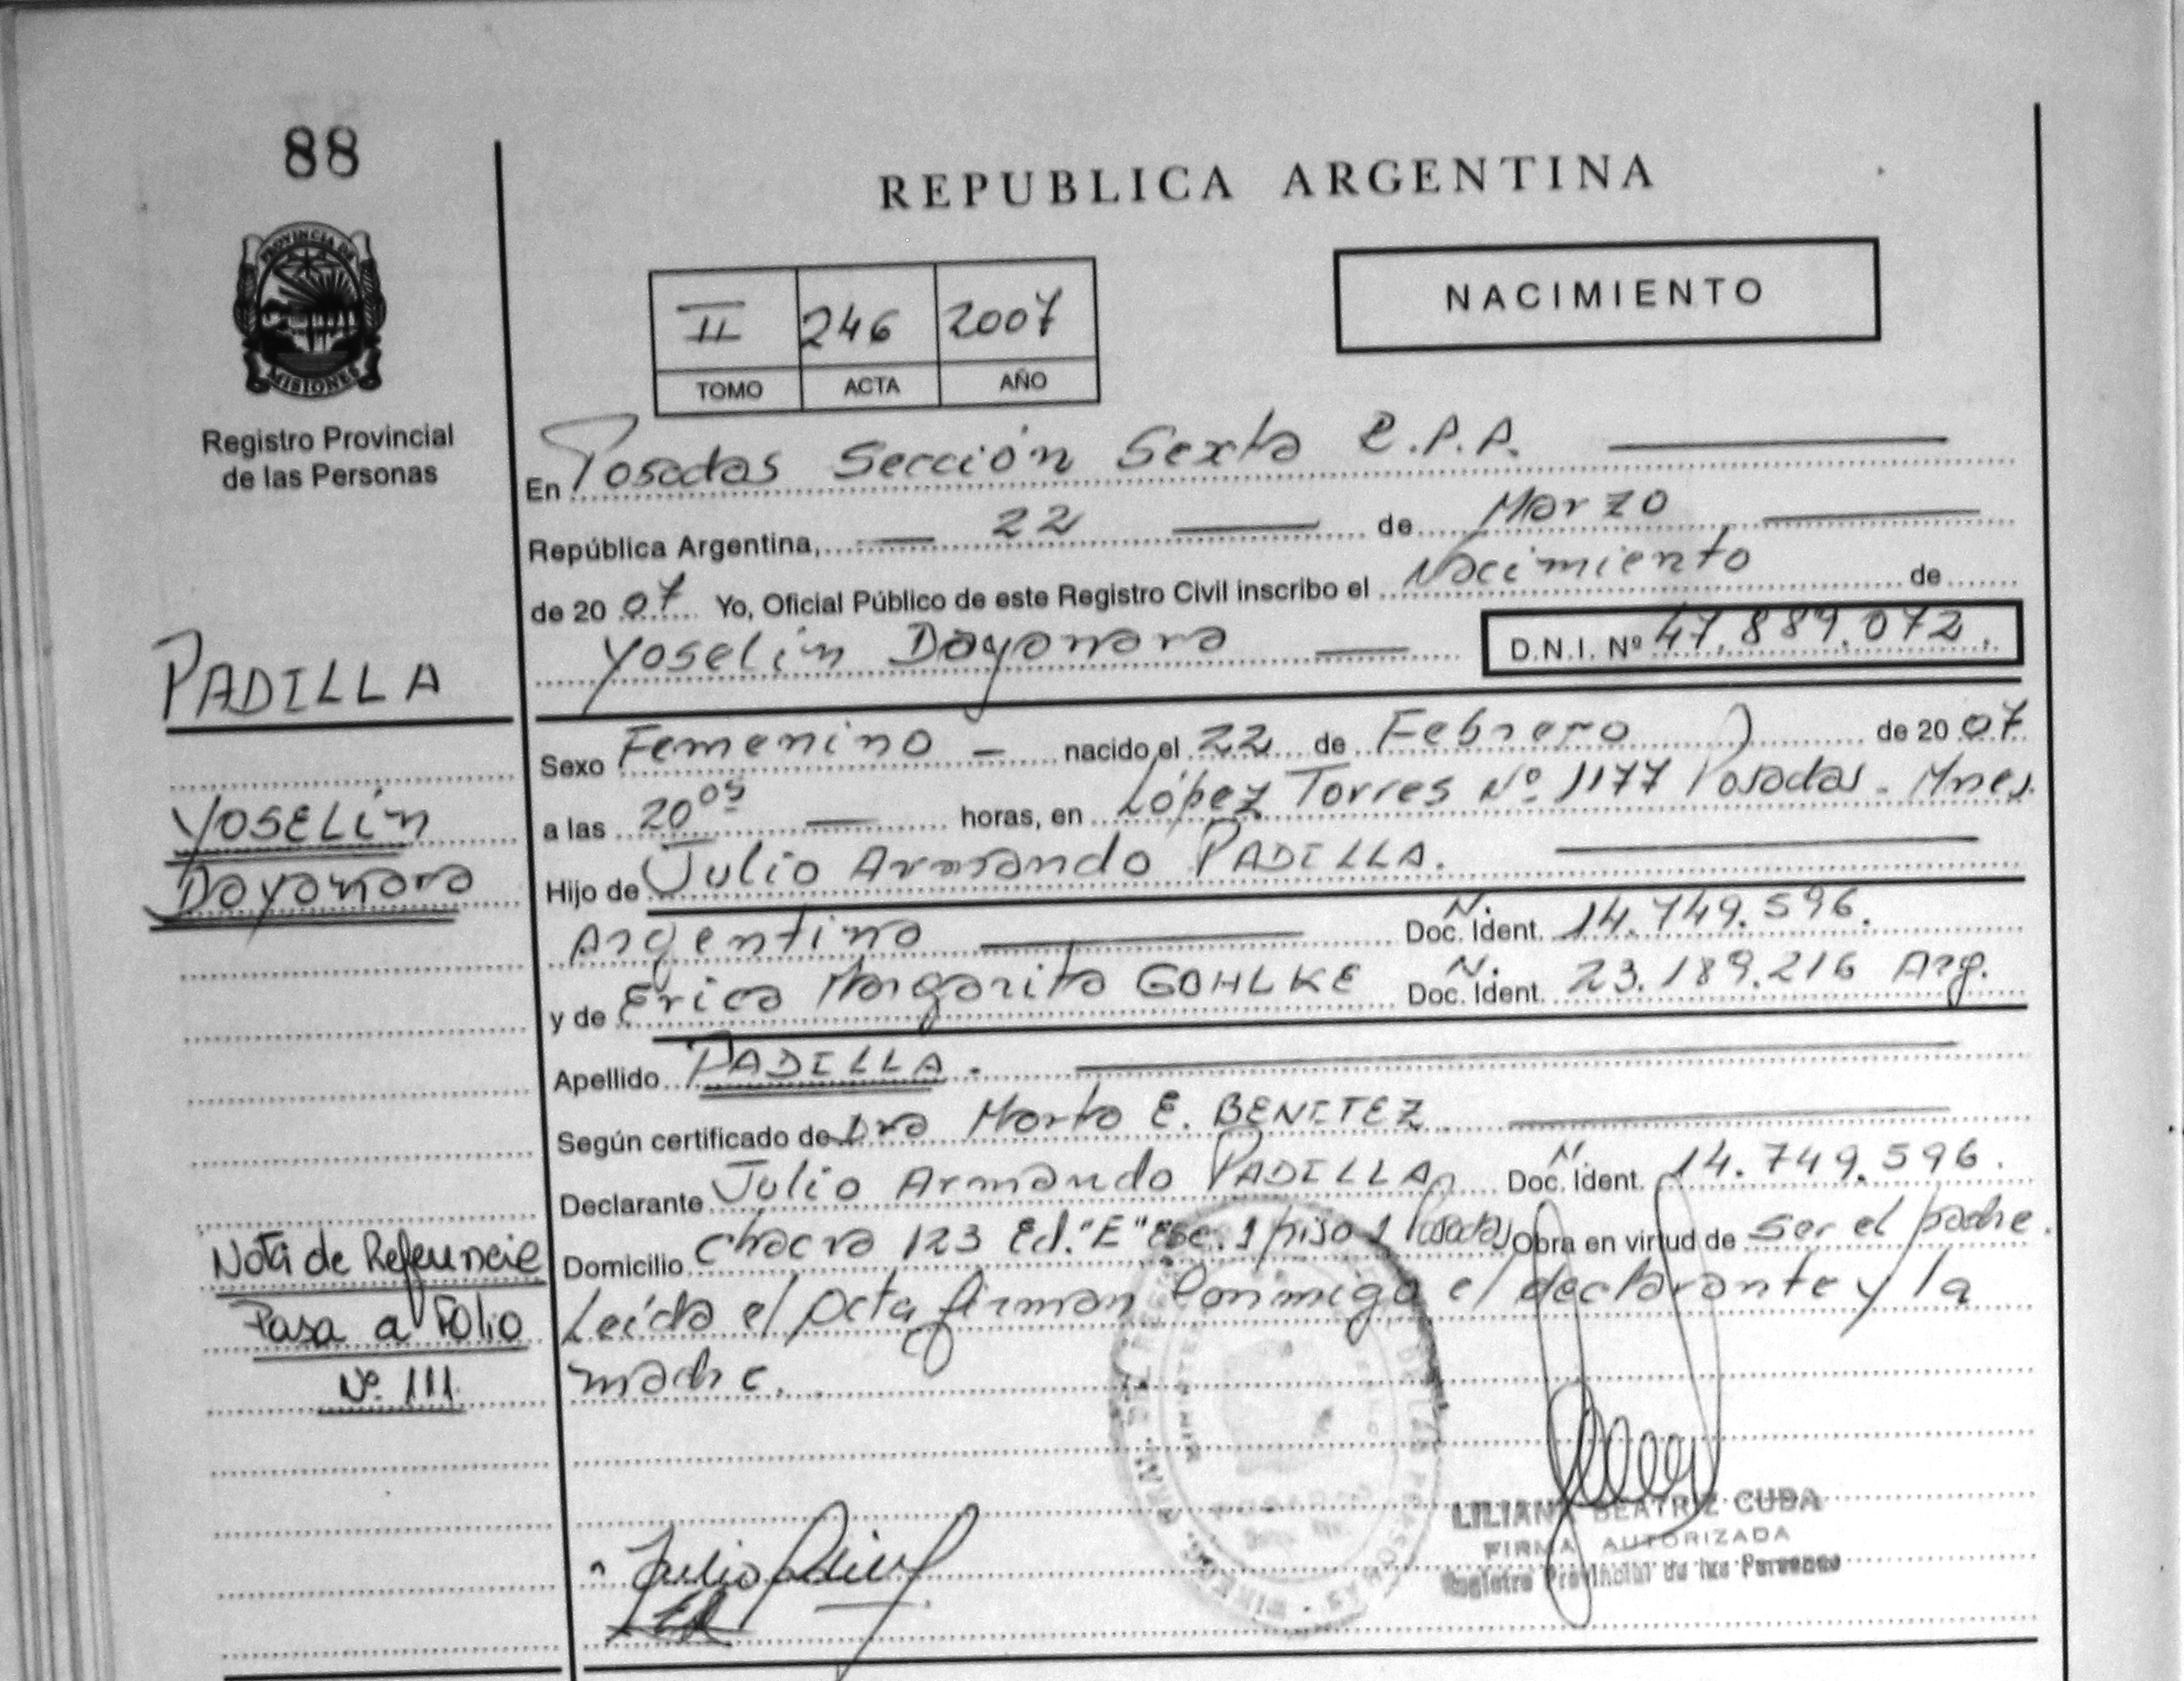 88
REPUBLICA ARGENTINA
PROVINCIA DE
MISIONES
Registro Provincial
de las Personas
II 246 2007
TOMO ACTA AÑO
NACIMIENTO
En Posadas Sección Sexta R.P.P.
República Argentina, 22 de Marzo
de 2007 Yo, Oficial Público de este Registro Civil inscribo el Nacimiento de
Yoselin Dayanara D.N.I. Nº 47.889.072.
PADILLA
Yoselin
Dayanara
Sexo Femenino nacido el 22 de Febrero de 2007
a las 20 05 horas, en López Torres Nº 1177 Posadas. Mnes.
Hijo de Julio Armando PADILLA.
Argentino Doc. Ident. N. 14.749.596.
y de Erica Margarita GOHLKE Doc. Ident. N. 23.189.216 Arg.
Apellido PADILLA.
Según certificado de Dra Marta E. BENITEZ
Declarante Julio Armando PADILLA Doc. Ident. N. 14.749.596.
Domicilio Chacra 123 Ed. "E" Esc. 1 piso 1 Posadas Obra en virtud de ser el padre.
Leída el acta firman conmigo el declarante y la
madre.
Nota de Referencia
Pasa a Folio
Nº 111
Julio
LILIANA BEATRIZ CUBA
FIRMA AUTORIZADA
Registro Provincial de las Personas